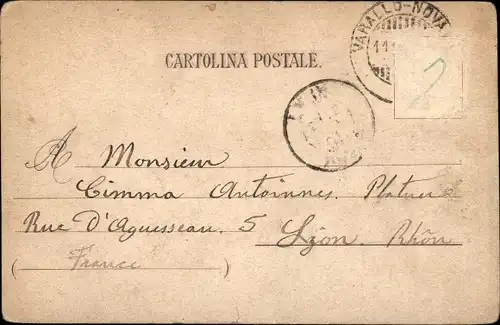 VARALLO-NOV
11
CARTOLINA POSTALE.
A Monsieur
Cimma Antoinnes. Platrier
Rue D'Aguesseau. 5 Lyon. Rhôn
(France)